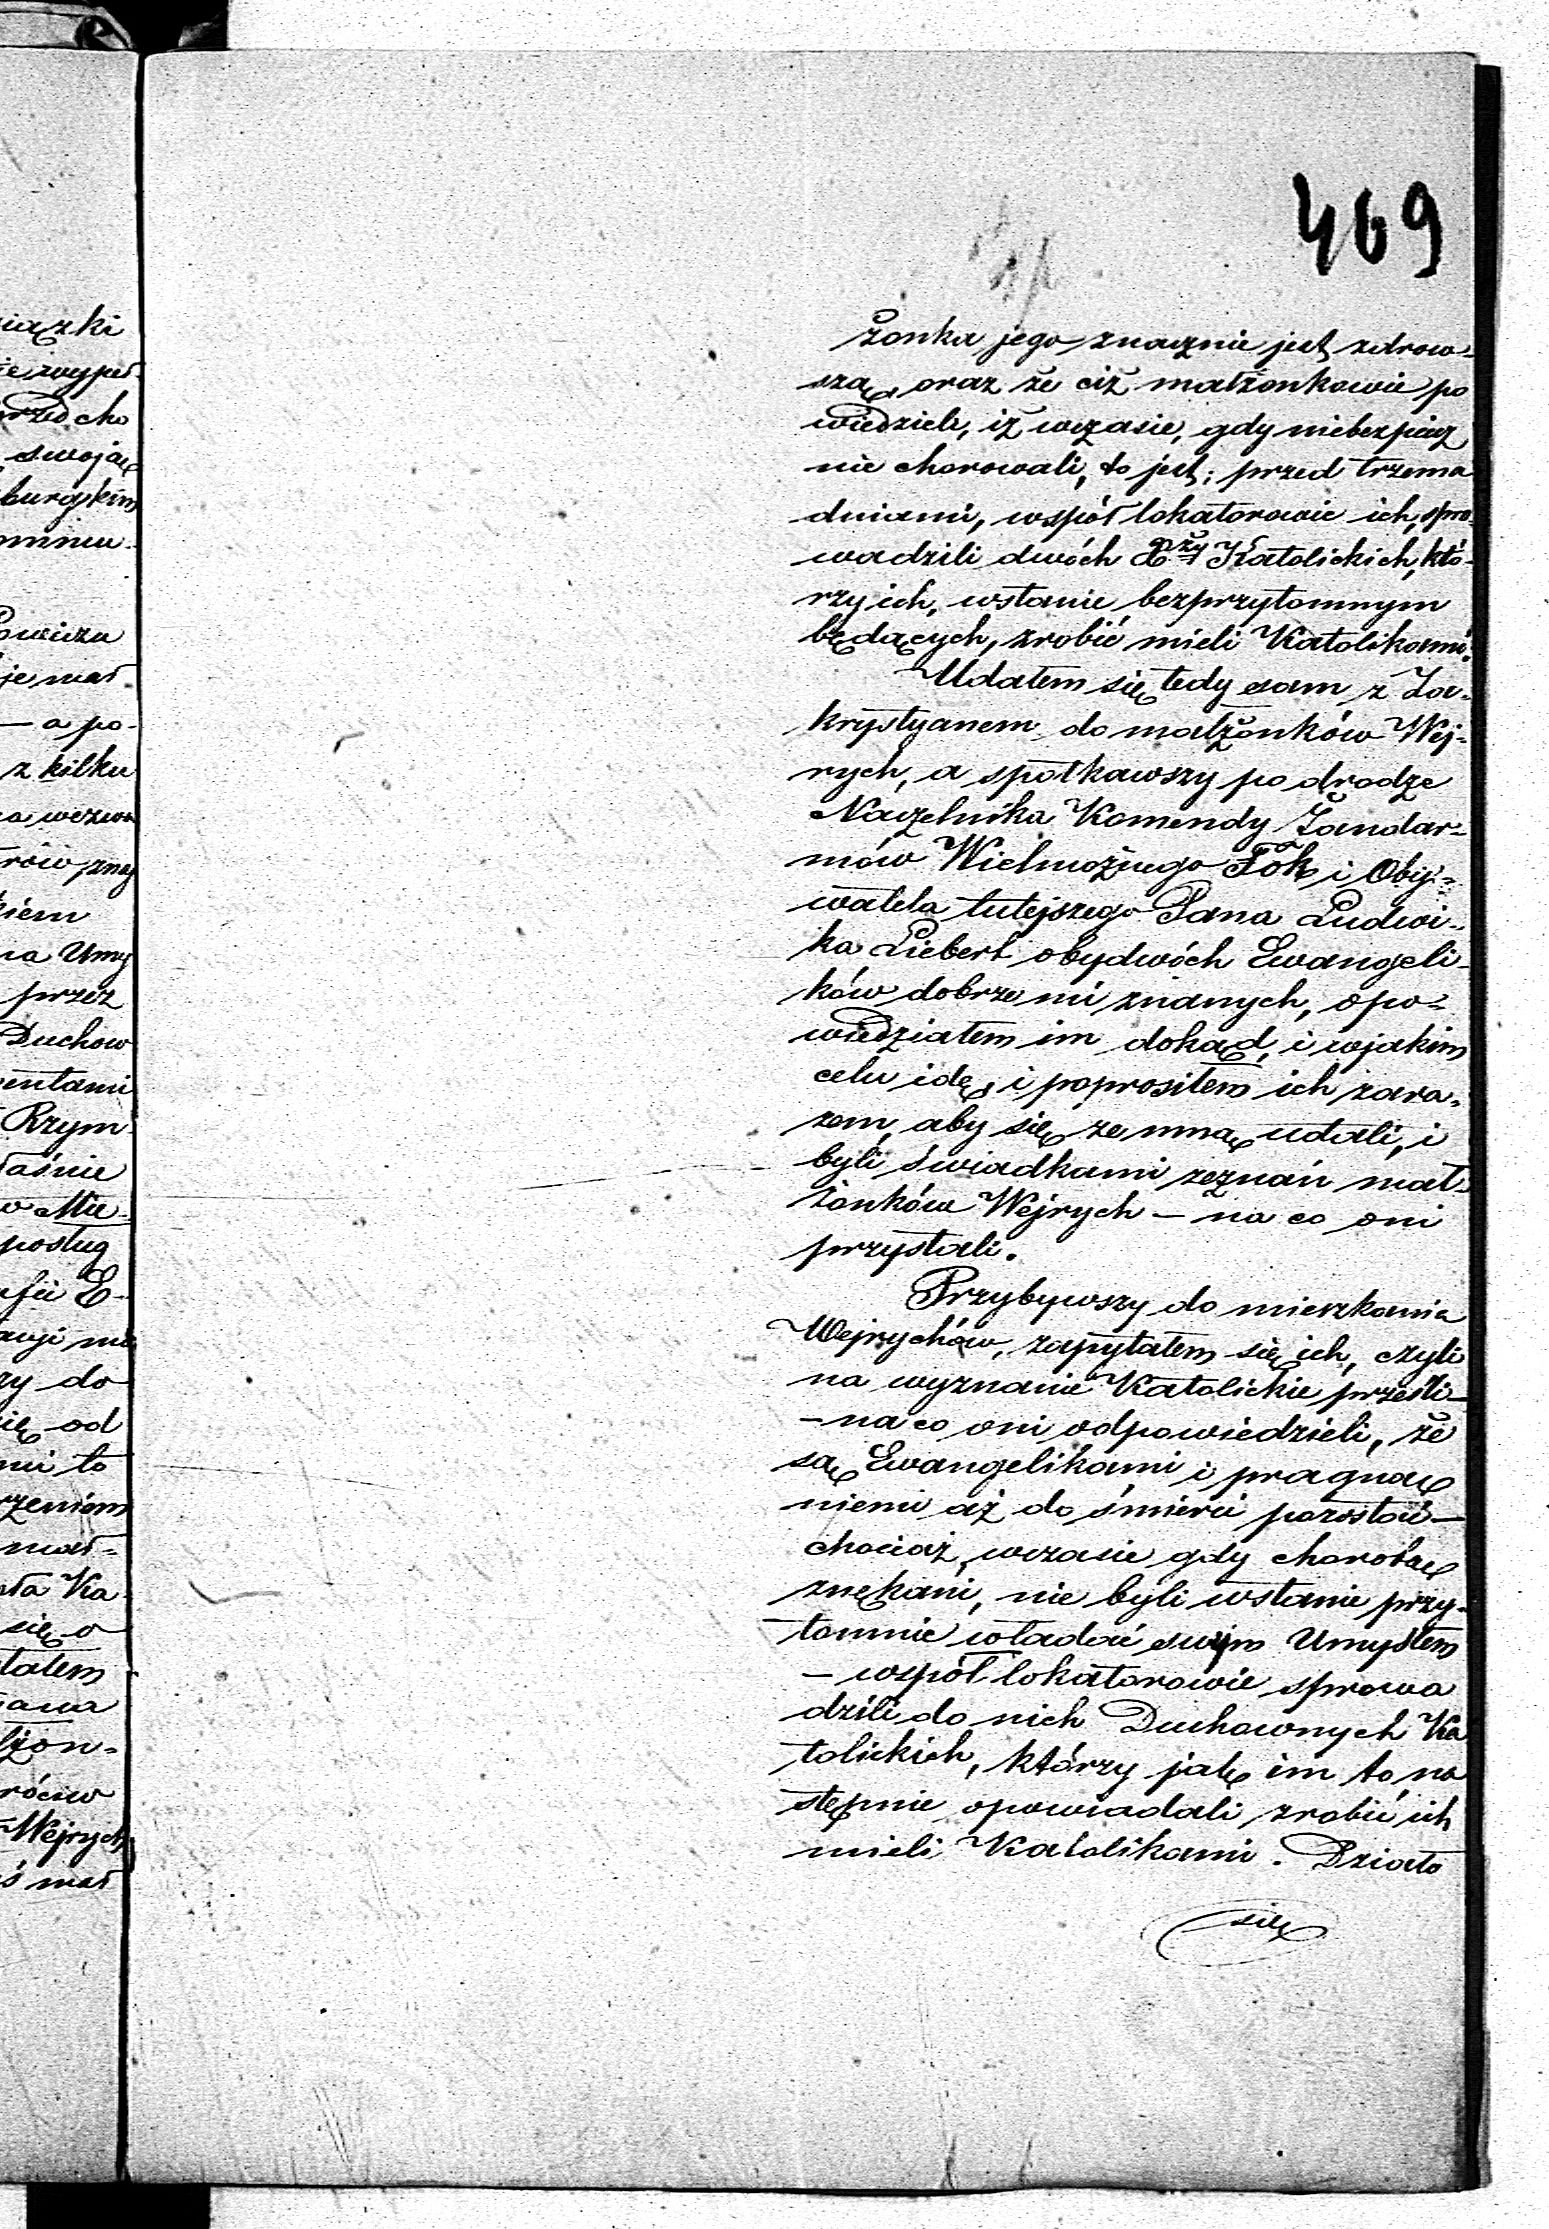 469
żonka jego znacznie jest zdrow-
szą, oraz że ciż małżonkowie po
wiedzieli, iż wczasie, gdy niebezpiecz
nie chorowali, to jest: przed trzema
dniami, współ lokatorowie ich, spro-
wadzili dwóch Xży Katolickich, któ-
rzy ich, wstanie bezprzytomnym
będących, zrobić mieli Katolikami.
Udałem się tedy sam z Za-
krystyanem do małżonków Wej-
rych, a spotkawszy po drodze
Naczelnika Komendy Żandar-
mów Wielmożnego Fok i Oby-
watela tutejszego Pana Ludwi-
ka Liebert obydwóch Ewangeli-
ków dobrze mi znanych, opo-
wiedziałem im dokąd, i wjakim
celu idę, i poprosiłem ich zara-
zem, aby się ze mną udali, i
byli świadkami zeznań mał-
żonków Wejrych – na co oni
przystali.
Przybywszy do mieszkania
Wejrychów, zapytałem się ich, czyli
na wyznanie Katolickie przeszli –
– na co oni odpowiedzieli, że
są Ewangelikami i pragną
niemi aż do śmierci pozostać –
chociaż, wczasie gdy chorobą
znękani, nie byli wstanie przy-
tomnie władać swym Umysłem
– współ lokatorowie sprowa
dzili do nich Duchownych Ka
tolickich, którzy jak im to na
stępnie opowiadali zrobić ich
mieli Katolikami. Działo
się